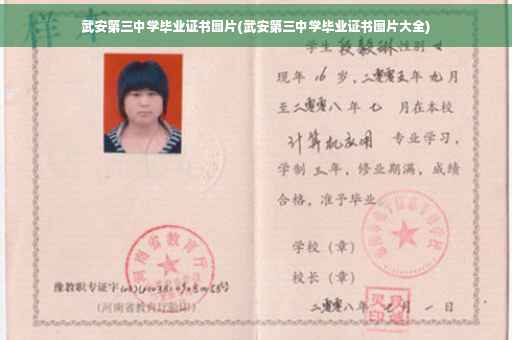 武安第三中学毕业证书图片(武安第三中学毕业证书图片大全)
样本
学生段毅琳性别女
现年16岁，二零零五年九月
至二零零八年七月在本校
计算机应用专业学习，
学制三年，修业期满，成绩
合格，准予毕业
学校（章）
校长（章）
河南省教育厅
豫教职专证字
(河南省教育厅验印)
二零零八年 月一日